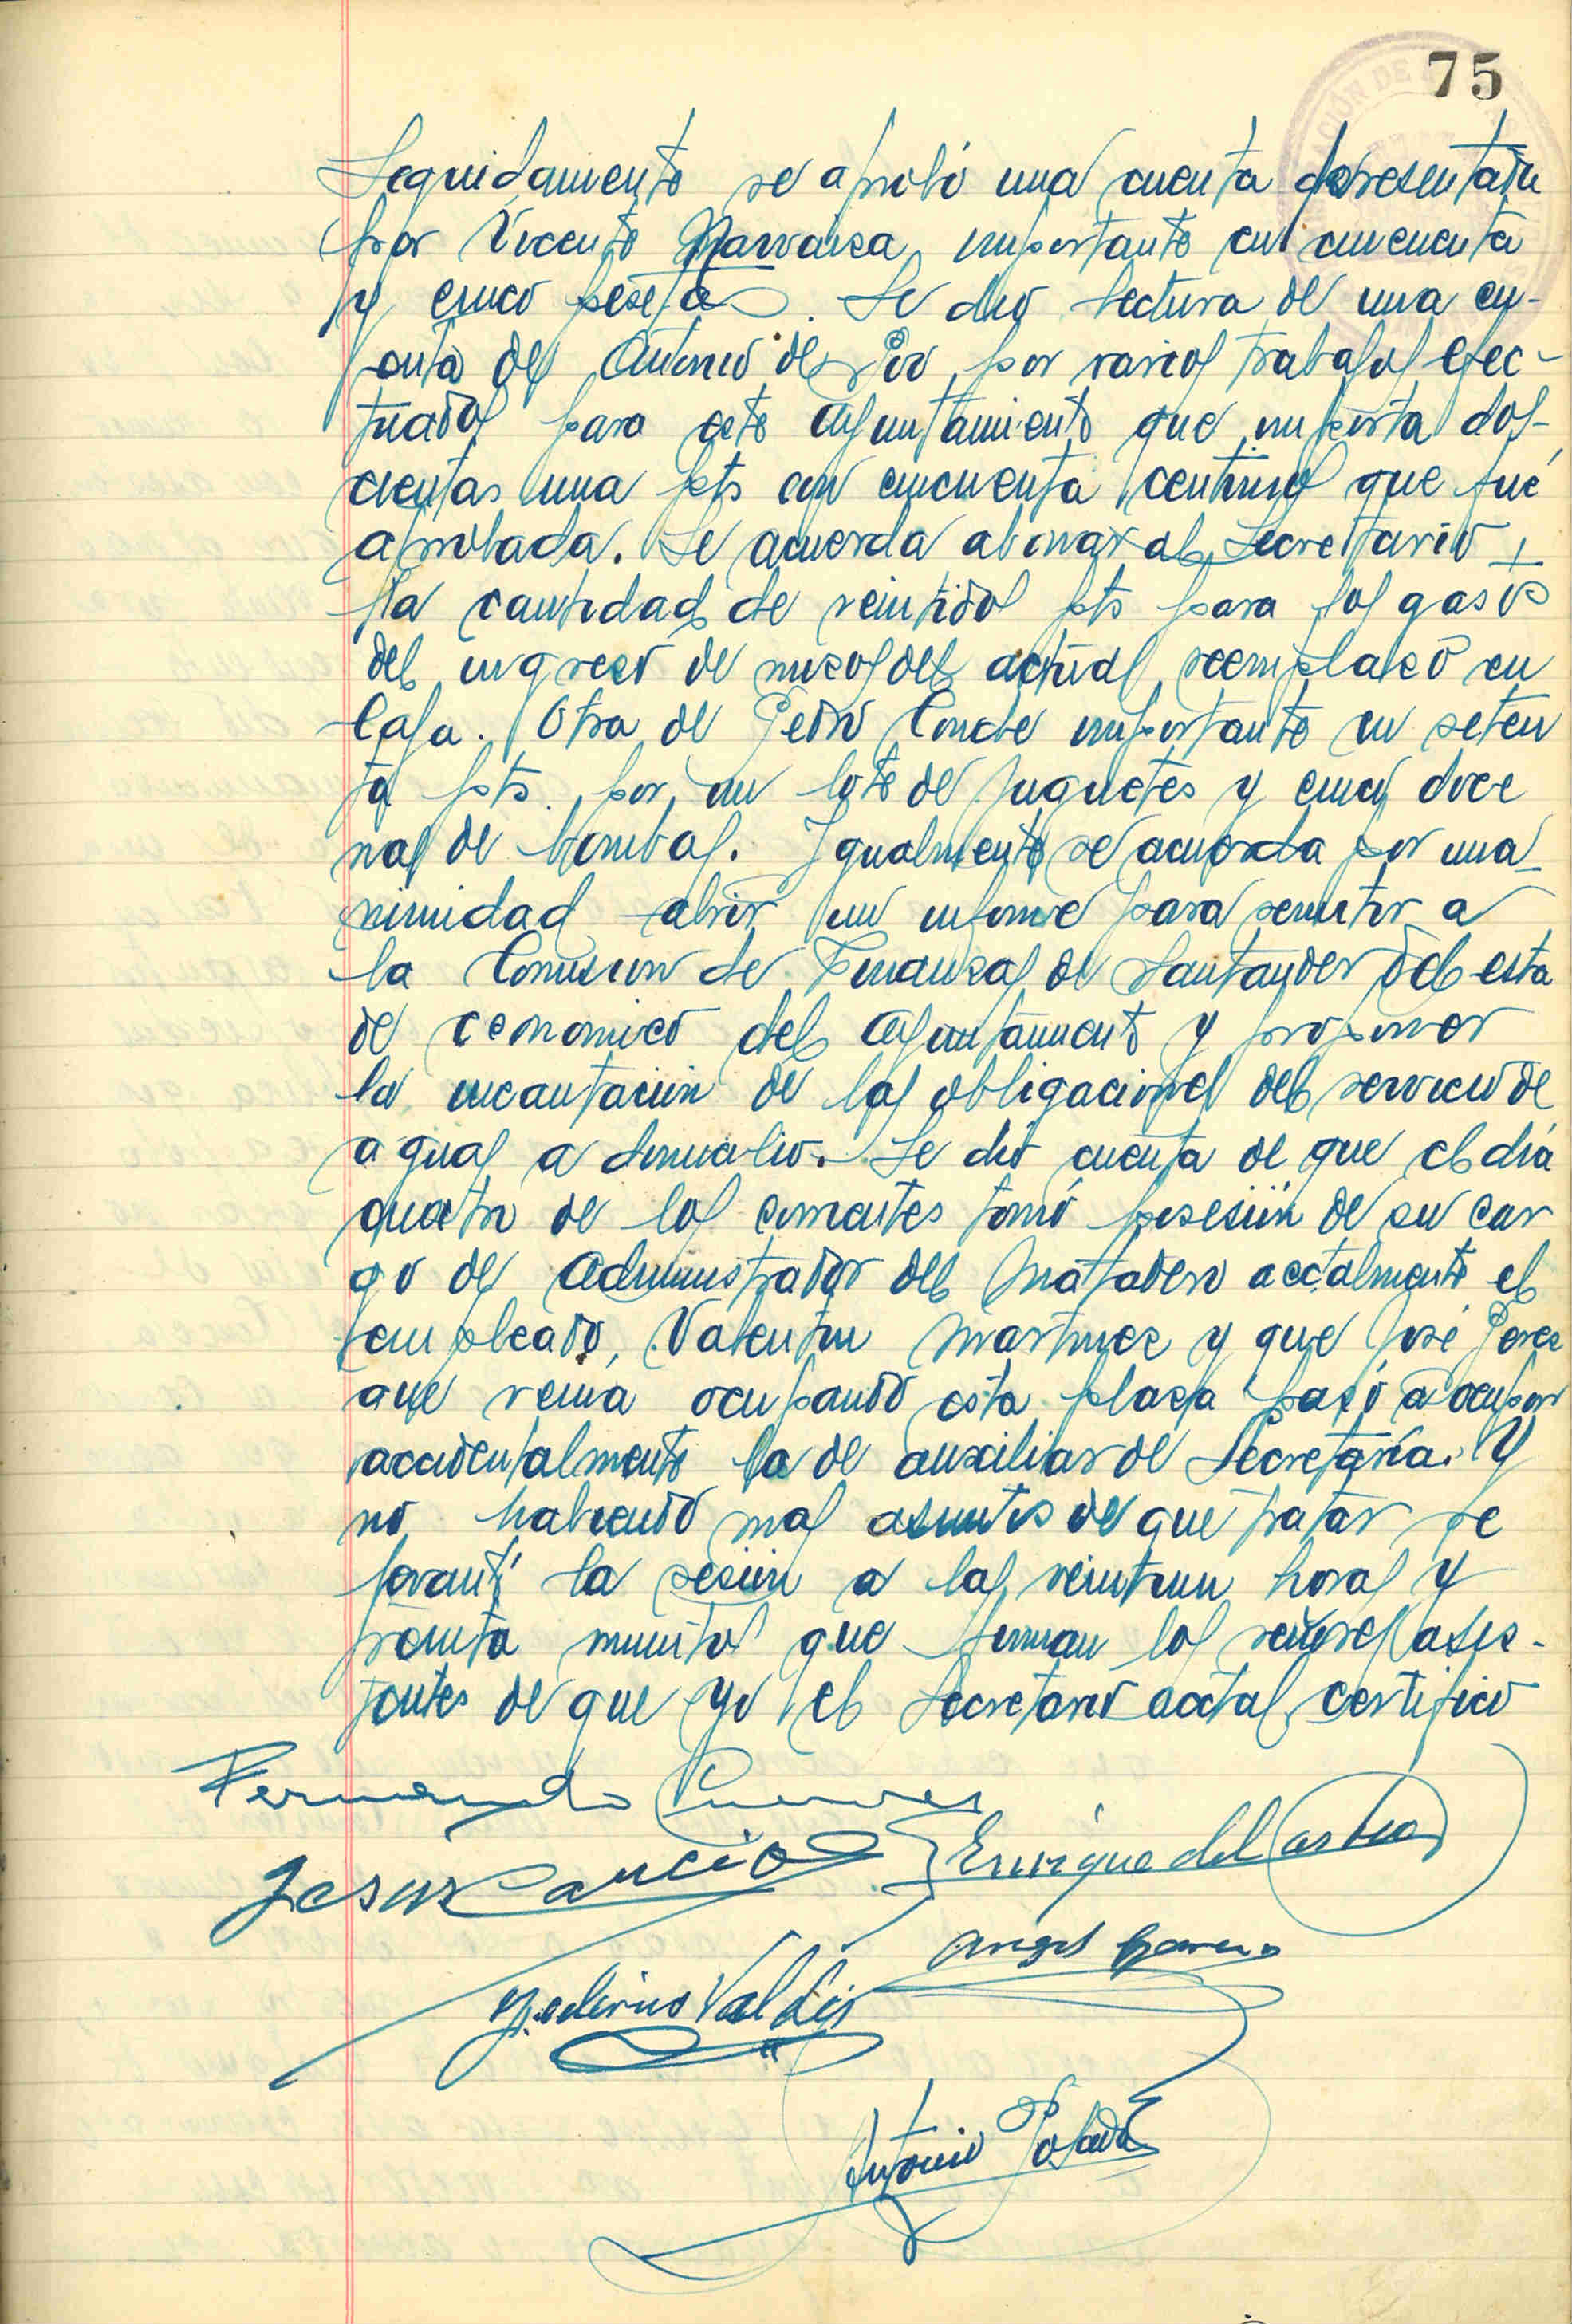 75
Seguidamente se aprobó una cuenta presentada
por Vicente Narvaiza importante en cincuenta
y cinco pesetas. Se dio lectura de una cu-
enta de Antonio del Rio por varios trabajos efec-
tuados para este Ayuntamiento que importa dos-
cientas una pts con cincuenta centimos que fué
aprobada. Se acuerda abonar al Secretario
la cantidad de veintidos pts para los gastos
del ingreso de mozos del actual reemplazo en
Caja. Otra de Pedro Conde importante en seten
ta pts. por un lote de juguetes y cinco doce
nas de bombas. Igualmente se acuerda por una-
nimidad abrir un informe para remitir a
la Comision de Finanzas de Santander del esta
do economico del Ayuntamiento y proponer
la incautación de las obligaciones del servicio de
aguas a domicilio. Se dió cuenta de que el día
quatro de los corrientes tomó posesión de su car
go de Administrador del Matadero acctalmente el
empleado, Valentin Martinez y que José Perez
que venia ocupando esta plaza pasó a ocupar
accidentalmente la de auxiliar de Secretaría. Y
no habiendo mas asuntos de que tratar se
levantó la sesión a las veintiun horas y
treinta minutos que firman los señores asis-
tentes de que yo el Secretario acctal certifico
Fernando Cuevas
Jesús Cancio Enrique del Castillo
Angel
Federico Valdés
Antonio Posada